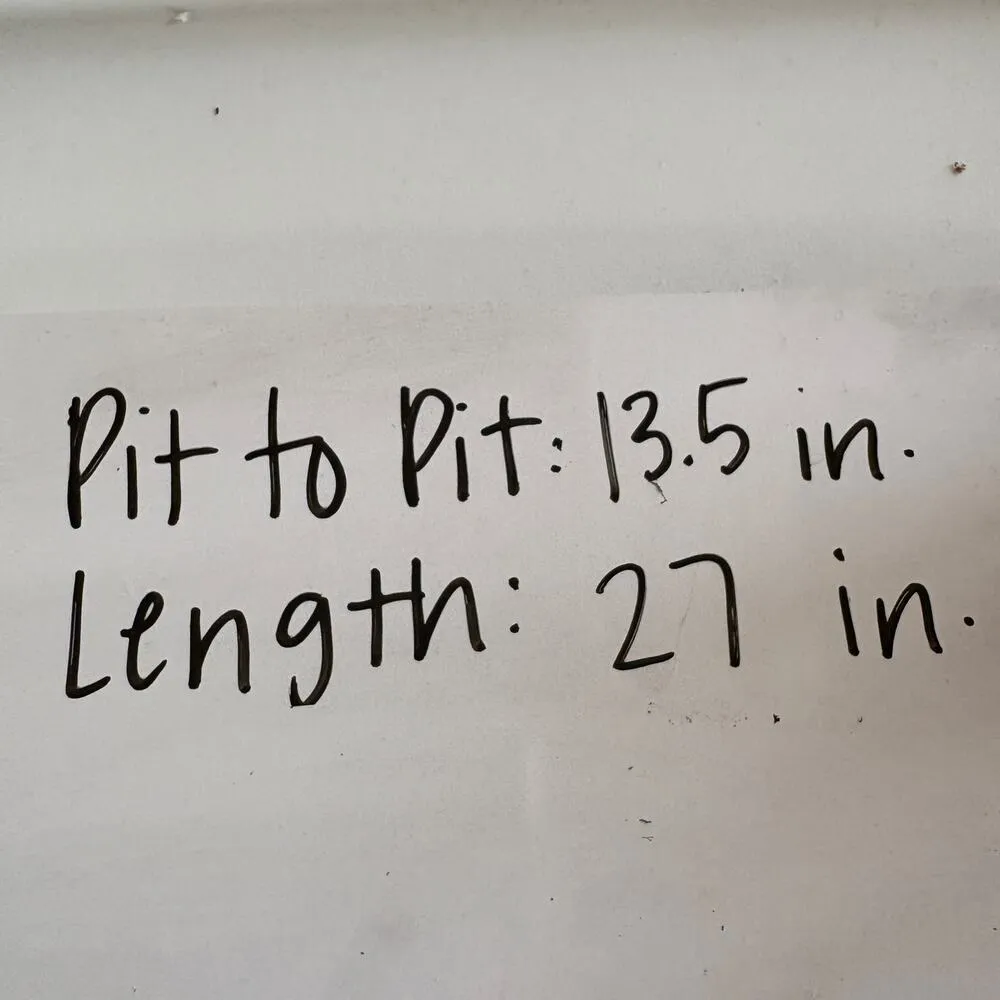 Pit to Pit: 13.5 in.
Length: 27 in.